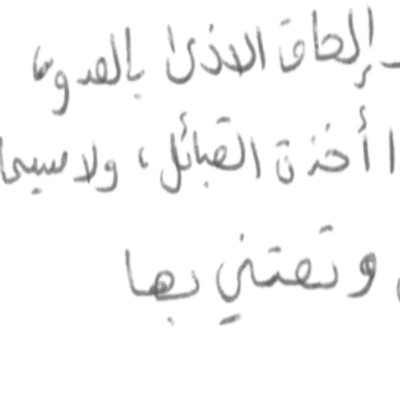 إلحاق الاذى بالعدو
أخذت القبائل، ولا سيما
وتعتني بها